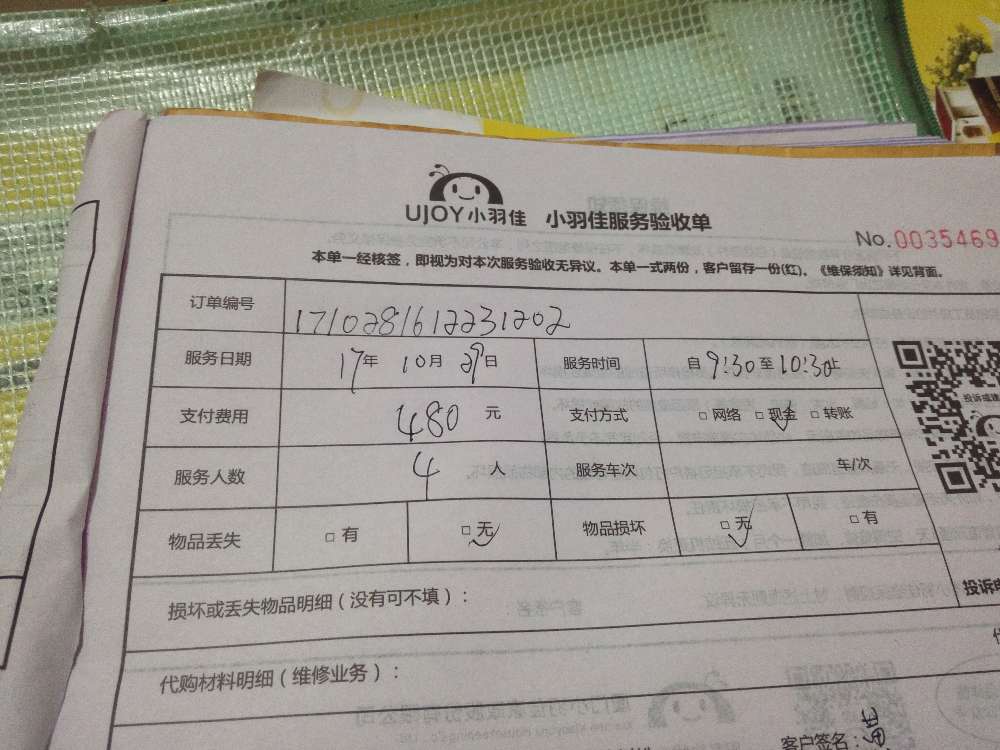 UJOY小羽佳 小羽佳服务验收单
No.0035469
本单一经核签，即视为对本次服务验收无异议。本单一式两份，客户留存一份(红)。《维保须知》详见背面。
订单编号 1710281612231202
服务日期 17年 10月 29日 服务时间 自 9:30 至 10:30止
支付费用 480 元 支付方式 □ 网络 □ 现金 □ 转账
服务人数 4 人 服务车次 车/次
物品丢失 □ 有 □ 无 物品损坏 □ 无 □ 有
损坏或丢失物品明细（没有可不填）：
投诉
代购材料明细（维修业务）：
客户签名：